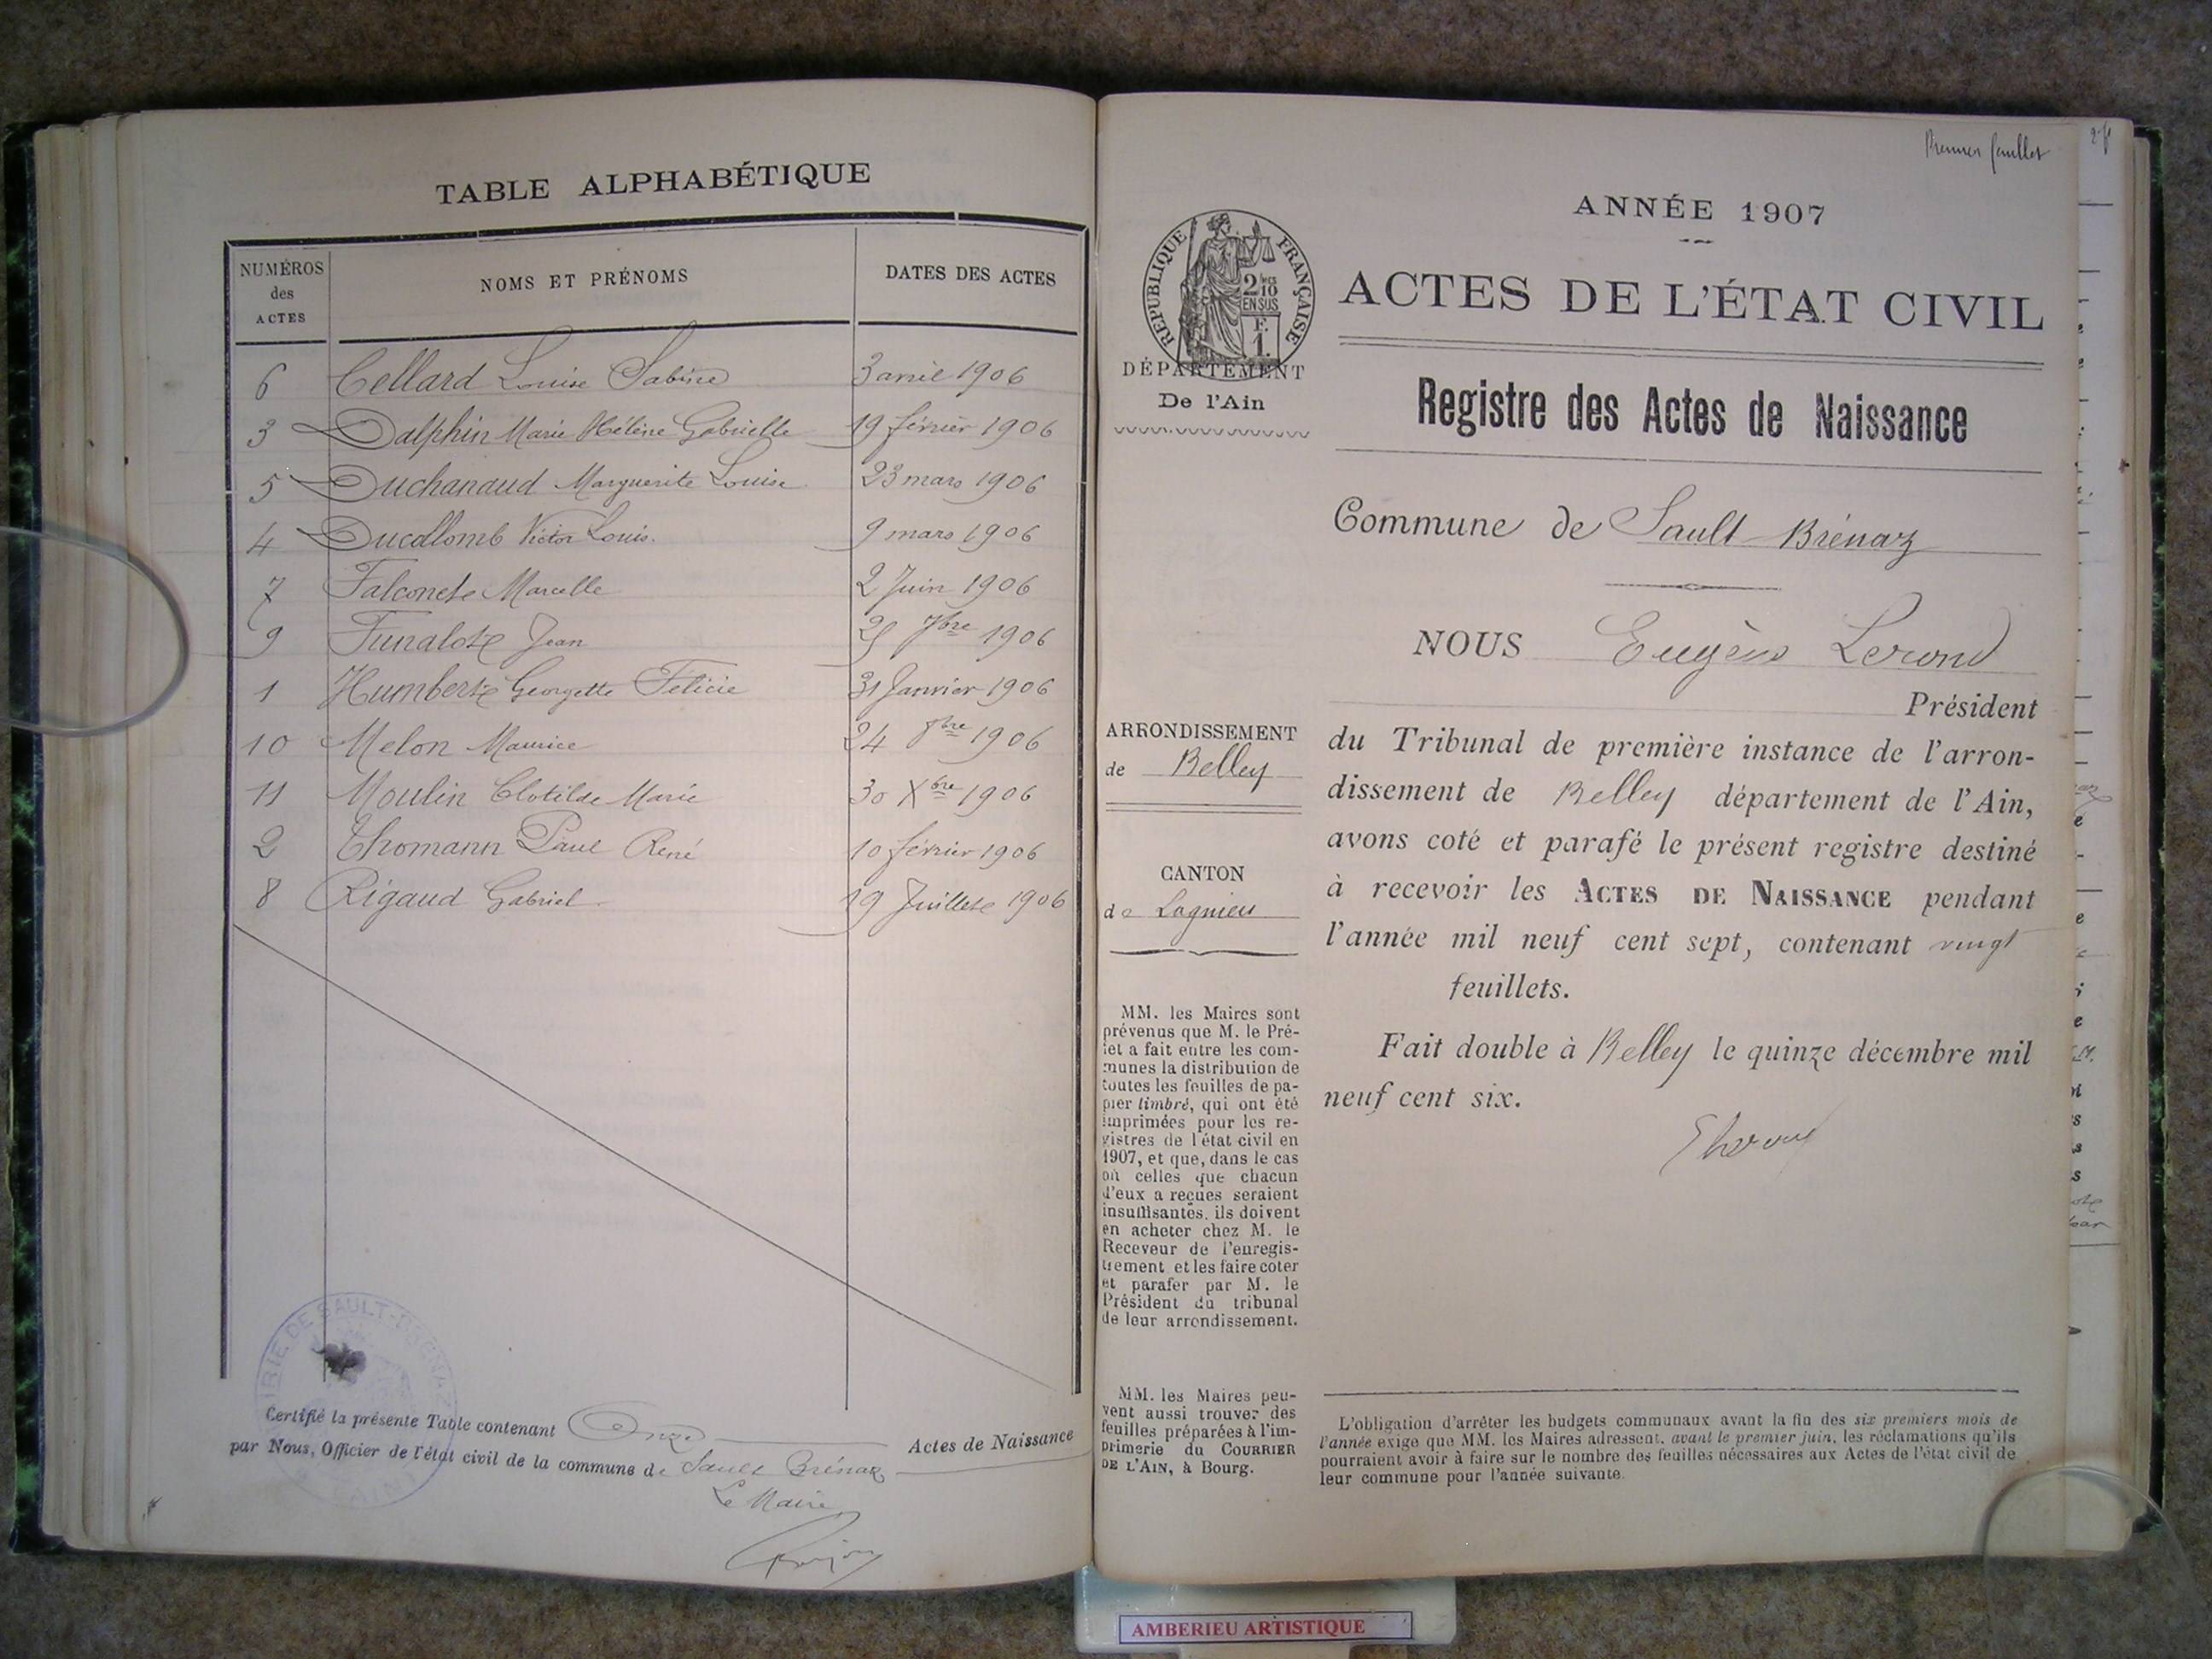 TABLE ALPHABÉTIQUE
NUMÉROS des ACTES NOMS ET PRÉNOMS DATES DES ACTES
6 Cellard Louise Sabine 3 avril 1906
3 Dalphin Marie Hélène Gabrielle 19 février 1906
5 Duchanaud Marguerite Louise 23 mars 1906
4 Ducollomb Victor Louis. 9 mars 1906
7 Falconet Marcelle 2 Juin 1906
9 Funalot Jean 25 7bre 1906
1 Humbert Georgette Félicie 31 Janvier 1906
10 Melon Maurice 24 8bre 1906
11 Moulin Clotilde Marie 30 Xbre 1906
2 Thomann Paul René 10 février 1906
8 Rigaud Gabriel 19 Juillet 1906
Certifié la présente Table contenant Onze Actes de Naissance
par Nous, Officier de l'état civil de la commune de Sault Brénaz
Le Maire
Premier feuillet
ANNÉE 1907
RÉPUBLIQUE FRANÇAISE
2/10
EN SUS
F.
1.
ACTES DE L'ÉTAT CIVIL
DÉPARTEMENT
De l'Ain
Registre des Actes de Naissance
Commune de Sault-Brénaz
NOUS Eugène Lerond
Président
du Tribunal de première instance de l'arron-
dissement de Belley département de l'Ain,
avons coté et parafé le présent registre destiné
à recevoir les ACTES DE NAISSANCE pendant
l'année mil neuf cent sept, contenant vingt
feuillets.
Fait double à Belley le quinze décembre mil
neuf cent six.
ARRONDISSEMENT
de Belley
CANTON
de Lagnieu
MM. les Maires sont
prévenus que M. le Pré-
fet a fait entre les com-
munes la distribution de
toutes les feuilles de pa-
pier timbré, qui ont été
imprimées pour les re-
gistres de l'état civil en
1907, et que, dans le cas
où celles que chacun
d'eux a reçues seraient
insuffisantes, ils doivent
en acheter chez M. le
Receveur de l'enregis-
trement et les faire coter
et parafer par M. le
Président du tribunal
de leur arrondissement.
MM. les Maires peu-
vent aussi trouver des
feuilles préparées à l'im-
primerie du COURRIER
DE L'AIN, à Bourg.
L'obligation d'arrêter les budgets communaux avant la fin des six premiers mois de
l'année exige que MM. les Maires adressent, avant le premier juin, les réclamations qu'ils
pourraient avoir à faire sur le nombre des feuilles nécessaires aux Actes de l'état civil de
leur commune pour l'année suivante.
AMBERIEU ARTISTIQUE